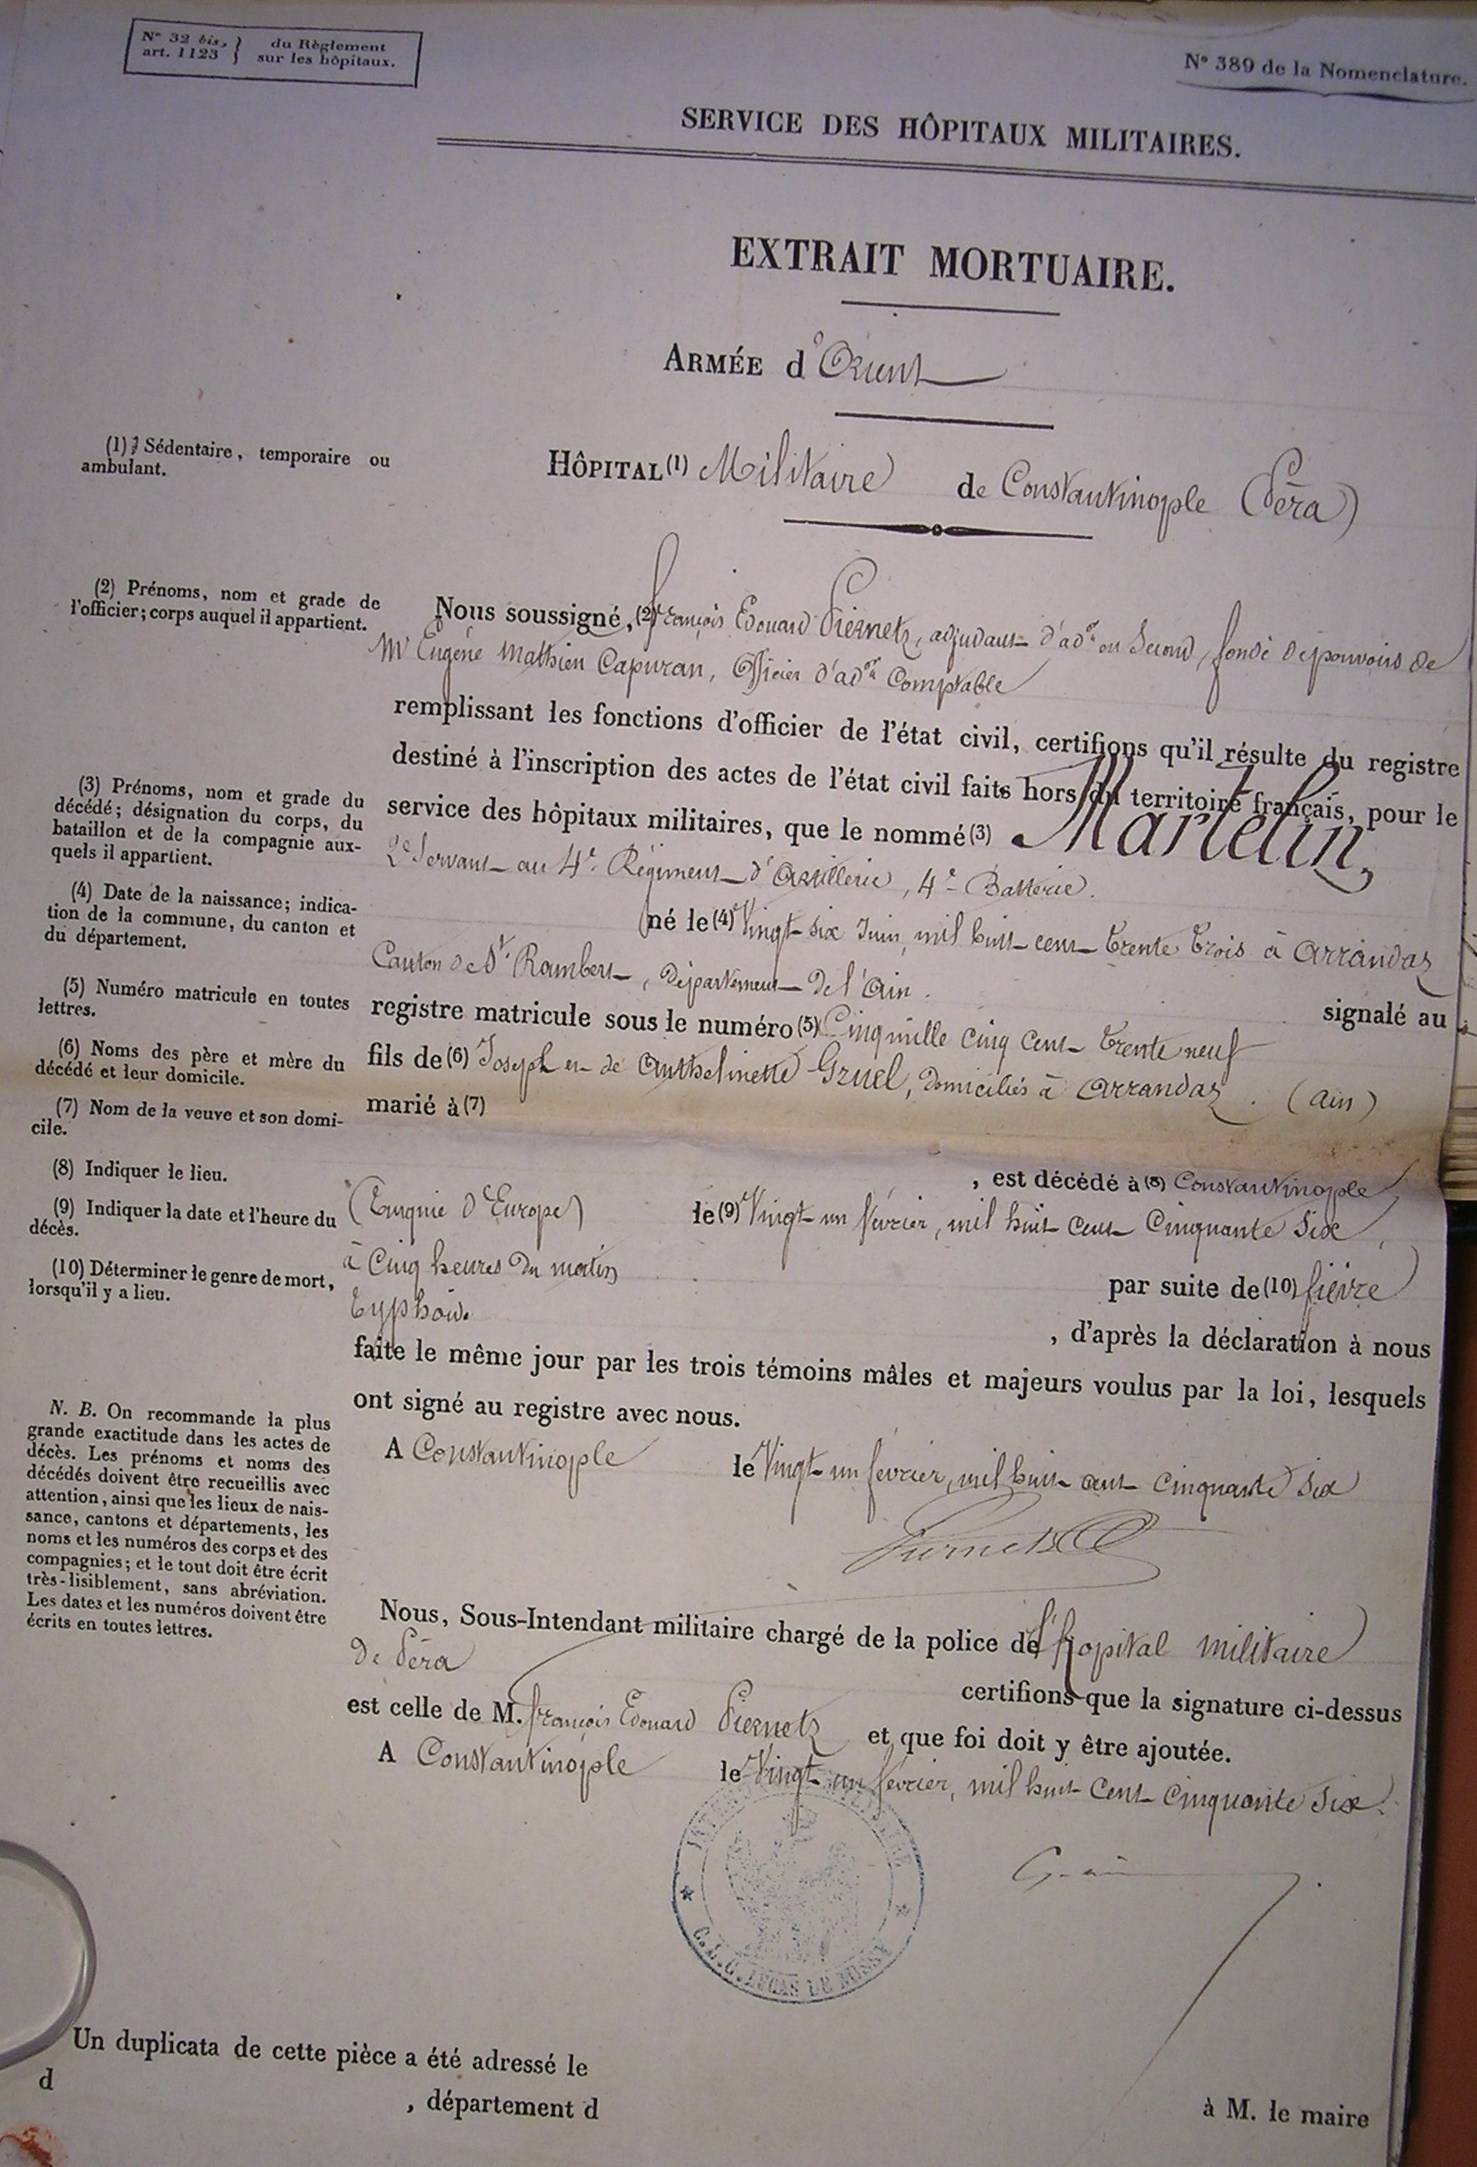 N° 32 bis, } du Règlement
art. 1123 } sur les hôpitaux.
N° 389 de la Nomenclature.
SERVICE DES HÔPITAUX MILITAIRES.
EXTRAIT MORTUAIRE.
ARMÉE d'Orient
(1) Sédentaire, temporaire ou
ambulant.
HÔPITAL (1) Militaire de Constantinople (Péra)
(2) Prénoms, nom et grade de
l'officier; corps auquel il appartient.
Nous soussigné, (2) François Edouard Piernetz, adjudant d'ad^on en Second, fondé de pouvoirs de
M^r Eugène Mathieu Capuran, Officier d'ad^on Comptable
remplissant les fonctions d'officier de l'état civil, certifions qu'il résulte du registre
destiné à l'inscription des actes de l'état civil faits hors du territoire français, pour le
service des hôpitaux militaires, que le nommé (3) Martelin,
(3) Prénoms, nom et grade du
décédé; désignation du corps, du
bataillon et de la compagnie aux-
quels il appartient.
2^e Servant au 4^e Régiment d'Artillerie, 4^e Batterie.
(4) Date de la naissance; indica-
tion de la commune, du canton et
du département.
né le (4) Vingt six Juin, mil huit cent trente trois à Arrandas
Canton de S^t Rambert, département de l'Ain.
signalé au
(5) Numéro matricule en toutes
lettres.
registre matricule sous le numéro (5) Cinq mille cinq cent trente neuf
(6) Noms des père et mère du
décédé et leur domicile.
fils de (6) Joseph et de Anthelmette Gruel, domiciliés à Arrandas. (Ain)
(7) Nom de la veuve et son domi-
cile.
marié à (7)
(8) Indiquer le lieu.
, est décédé à (8) Constantinople
(9) Indiquer la date et l'heure du
décès.
(Turquie d'Europe) le (9) Vingt un février, mil huit cent cinquante six,
à cinq heures du matin
(10) Déterminer le genre de mort,
lorsqu'il y a lieu.
par suite de (10) fièvre
typhoïde
, d'après la déclaration à nous
faite le même jour par les trois témoins mâles et majeurs voulus par la loi, lesquels
ont signé au registre avec nous.
N. B. On recommande la plus
grande exactitude dans les actes de
décès. Les prénoms et noms des
décédés doivent être recueillis avec
attention, ainsi que les lieux de nais-
sance, cantons et départements, les
noms et les numéros des corps et des
compagnies; et le tout doit être écrit
très-lisiblement, sans abréviation.
Les dates et les numéros doivent être
écrits en toutes lettres.
A Constantinople le Vingt un février, mil huit cent cinquante six
Piernetz
Nous, Sous-Intendant militaire chargé de la police de l'hopital militaire
de Péra
certifions que la signature ci-dessus
est celle de M. François Edouard Piernetz et que foi doit y être ajoutée.
A Constantinople le Vingt un février, mil huit cent cinquante six.
INTENDANCE MILITAIRE
C.L.G. LUCAS DE MISSY
Un duplicata de cette pièce a été adressé le
à M. le maire
d , département d